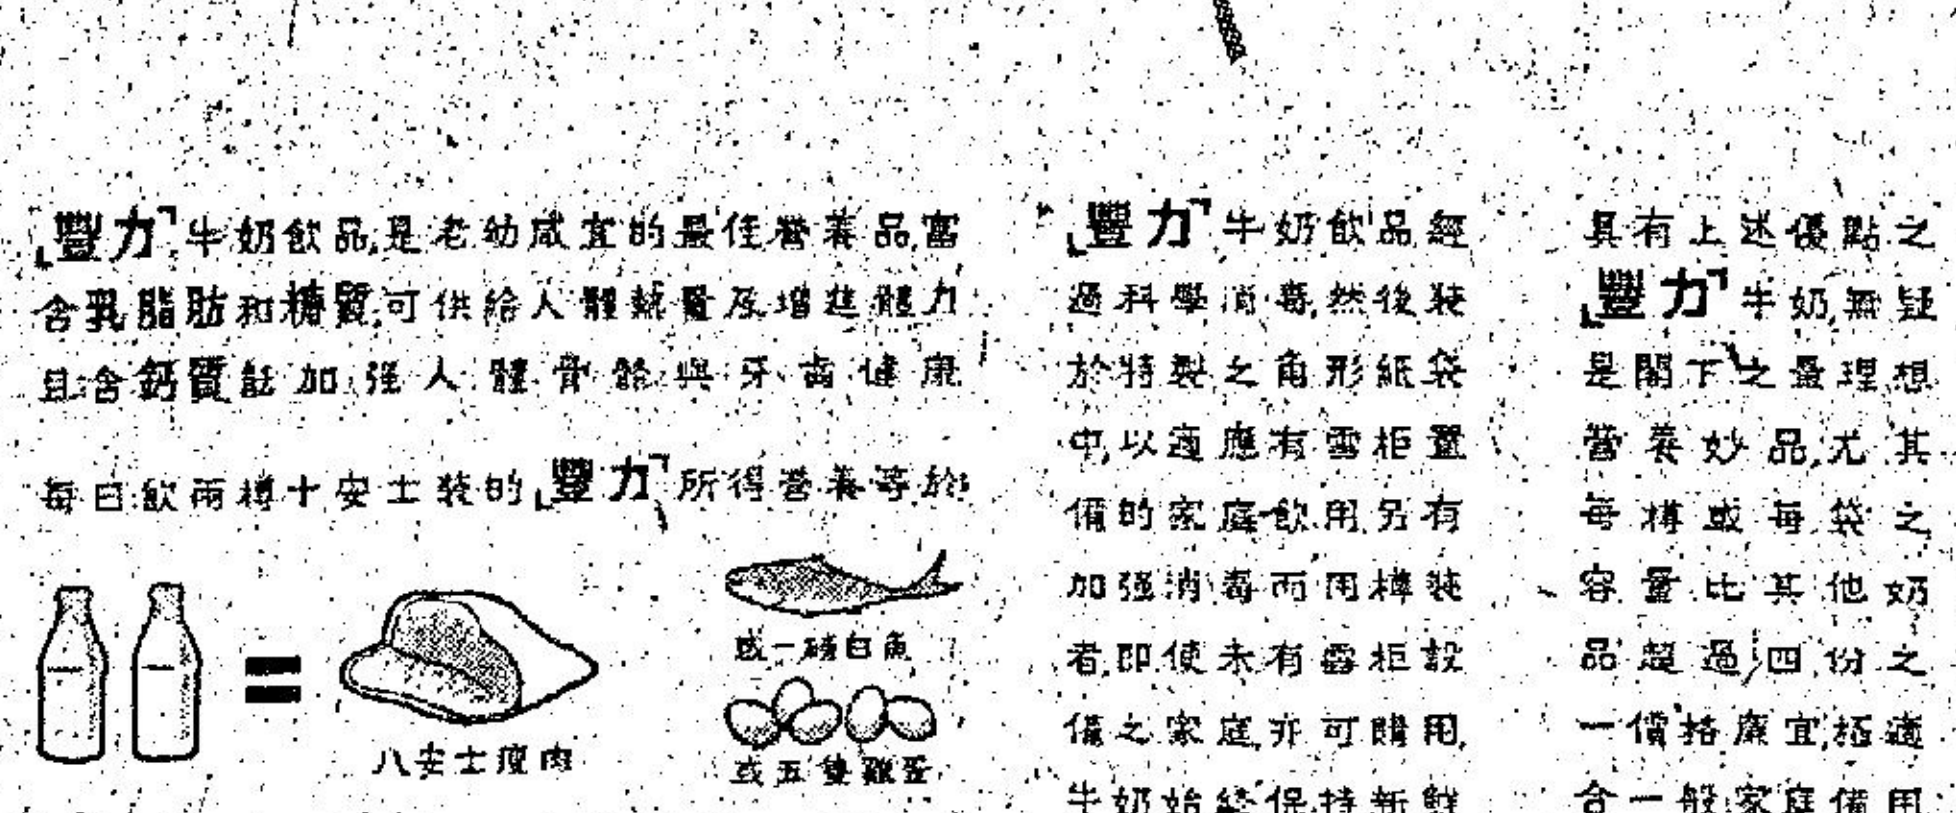 「豐力」牛奶飲品,是老幼咸宜的最佳營養品,富
含乳脂肪和糖質,可供給人體熱量及增進體力
且含鈣質能加强人體骨骼與牙齒健康
每日飲兩樽十安士裝的「豐力」所得營養等於
八安士瘦肉
或一磅白魚
或五隻雞蛋
「豐力」牛奶飲品經
過科學消毒,然後裝
於特製之角形紙袋
中,以適應有雪柜置
備的家庭飲用,另有
加强消毒而用樽裝
者,即使未有雪柜設
備之家庭,亦可購用,
牛奶始終保持新鮮
具有上述優點之
「豐力」牛奶,無疑
是閣下之最理想
營養妙品,尤其
每樽或每袋之
容量比其他奶
品超過四份之
一價格廉宜,極適
合一般家庭備用